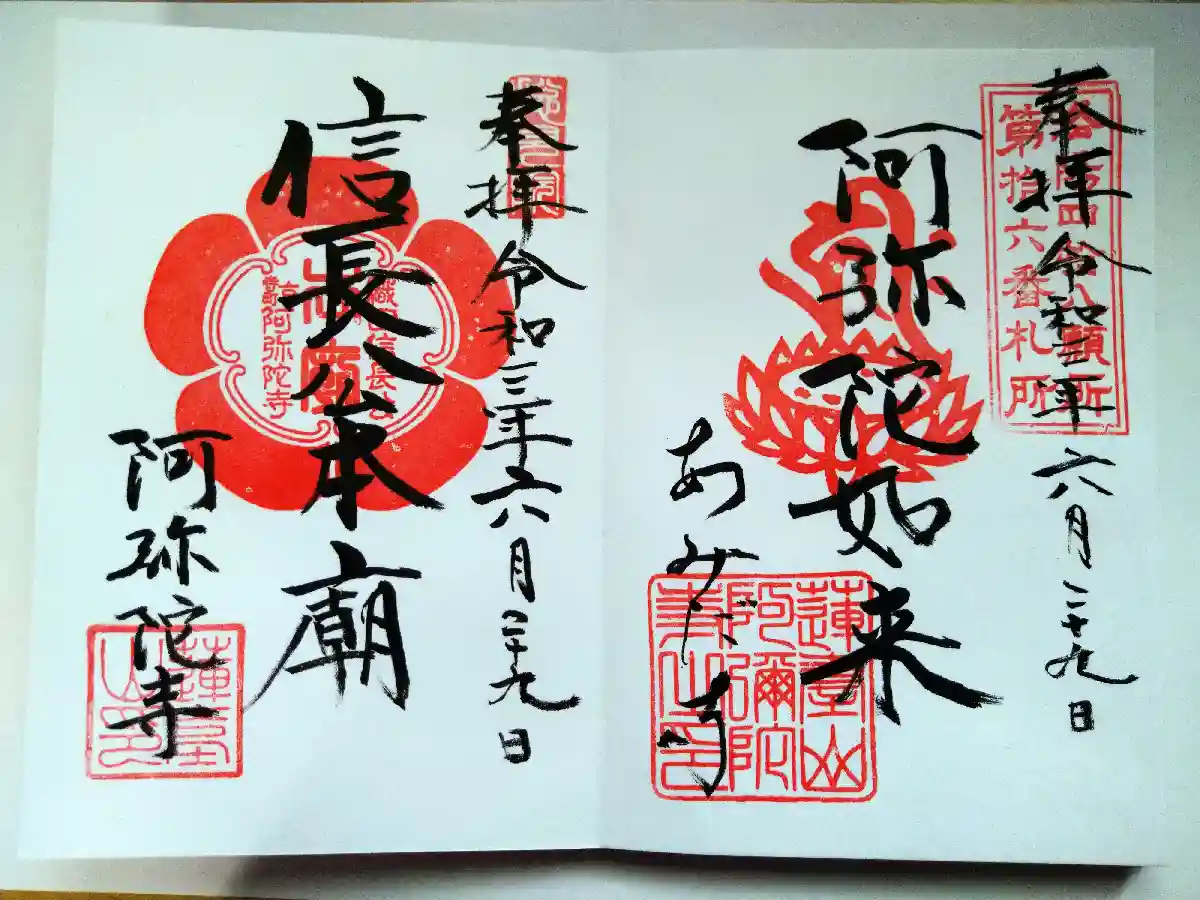 奉拝 令和三年 六月二十九日
第拾六番札所
阿弥陀如来
あみだ寺
蓮臺山
阿彌陀
寺之印
奉拝 令和三年 六月二十九日
信長公本廟
織田信長公
阿弥陀寺
阿弥陀寺
蓮臺
山